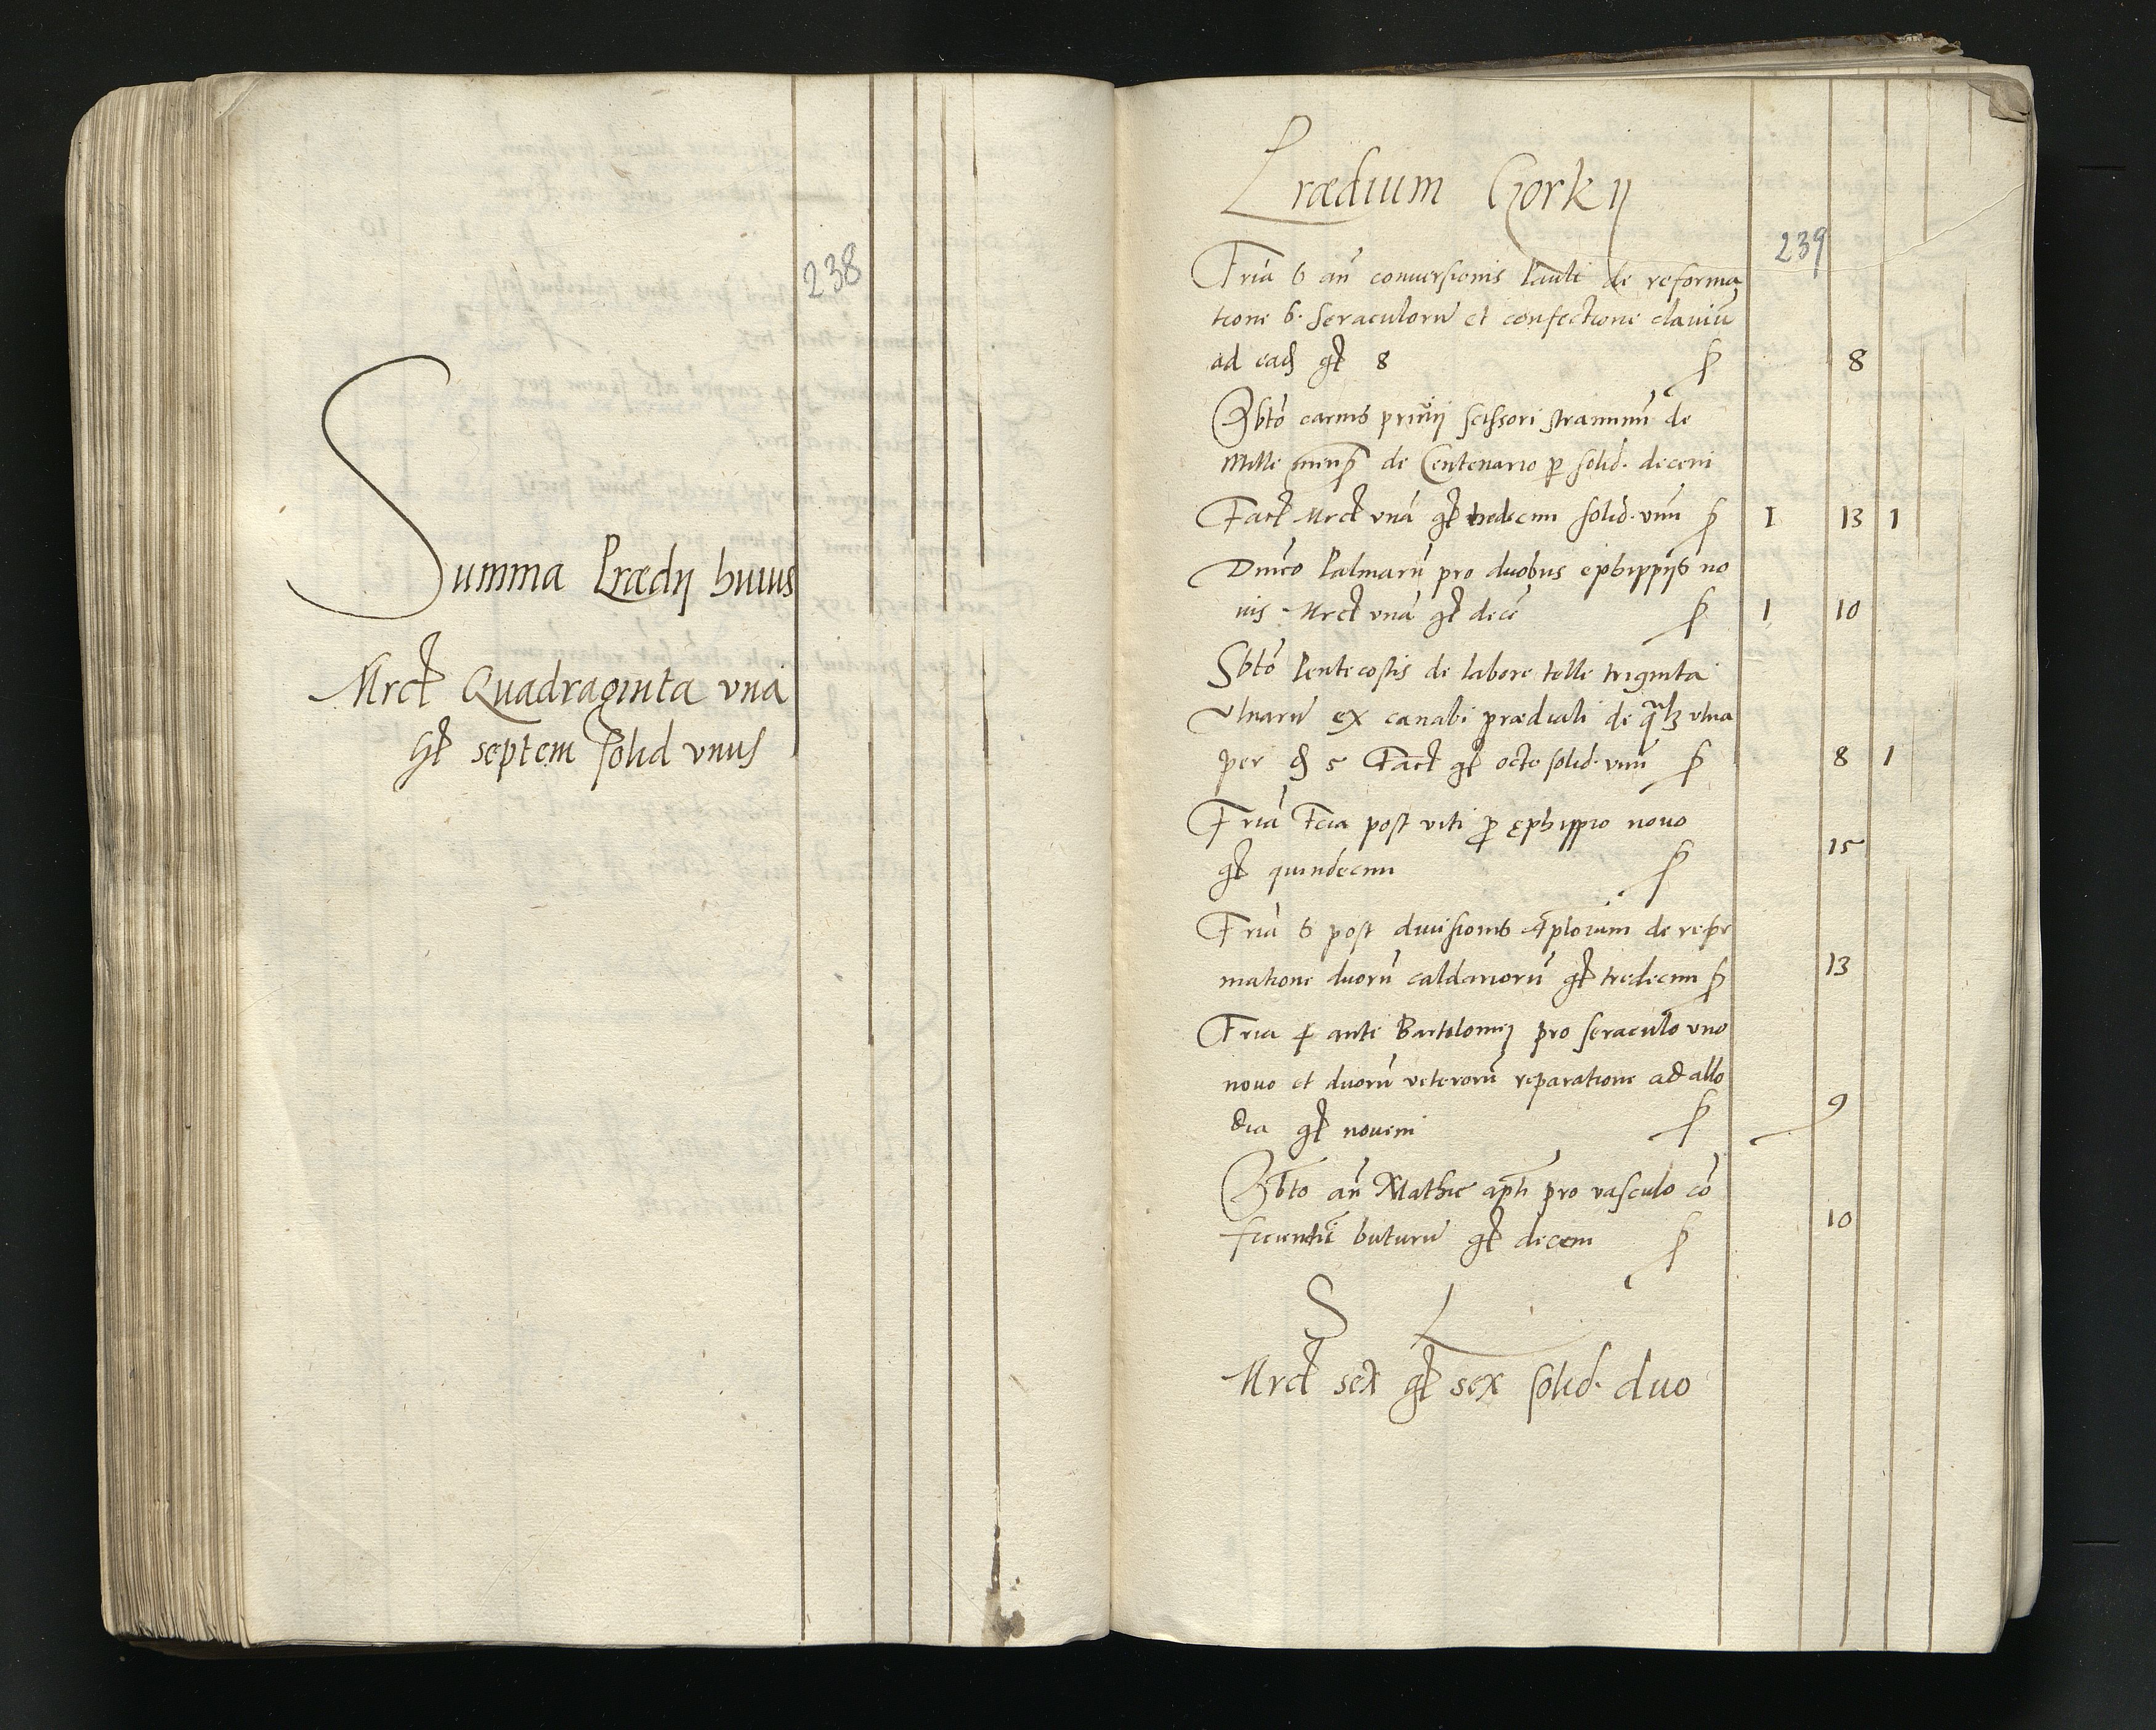 238
Summa Prædij huius
Mrct Quadraginta vna
gt septem solid vnus
Prædium Gorkij
239
Fria 6 an conuersionis Pauli de reforma
tione 6. seraculoru et confectione clauiu
ad ead gt 8 8
Sbto carnis priuij scissori straminu de
Mille de Centenario p solid. decem
Fact Mrct vna gt tredecim solid. vnu 1 13 1
Dnico Palmaru pro duobus ephippijs no
uis Mrct vna gt dece 1 10
Sbto Pentecostis de labore telle triginta
vlnaru ex canabi prædiali de qualz vlna
per d 5 Fact gt octo solid. vnu 8 1
Fria Fcia post viti p ephippio nouo
gt quindecim 15
Fria 6 post diuisionis Aplorum de refor
matione duoru caldarioru gt tredecim 13
Fria 4 ante Bartolomej pro seraculo vno
nouo et duoru veteroru reparatione ad allo
dia gt nouem 9
Sbto an Mathie apli pro vasculo co
ficientie buturu gt decem 10
S L
Mrct sex gt sex solid. duo